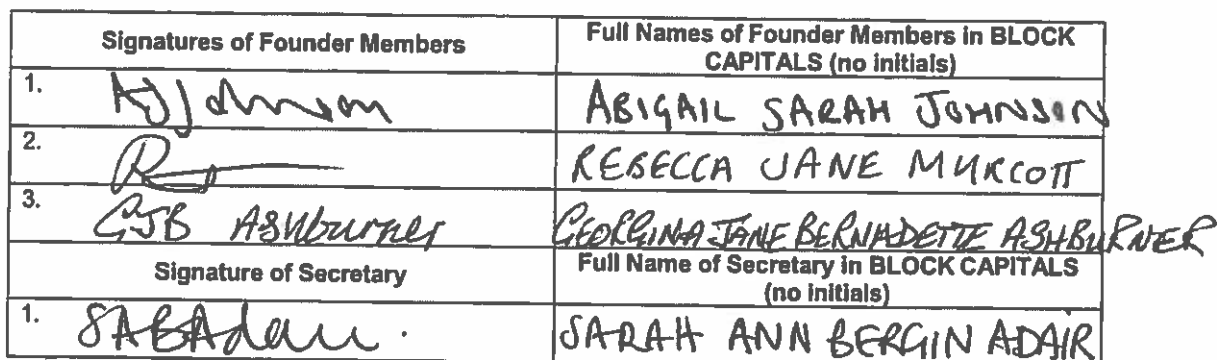 Signatures of Founder Members
Full Names of Founder Members in BLOCK
CAPITALS (no initials)
1. ASJohnson
ABIGAIL SARAH JOHNSON
2.
REBECCA JANE MURCOTT
3. GJB Ashburner
GEORGINA JANE BERNADETTE ASHBURNER
Signature of Secretary
Full Name of Secretary in BLOCK CAPITALS
(no initials)
1. SABAdair.
SARAH ANN BERGIN ADAIR